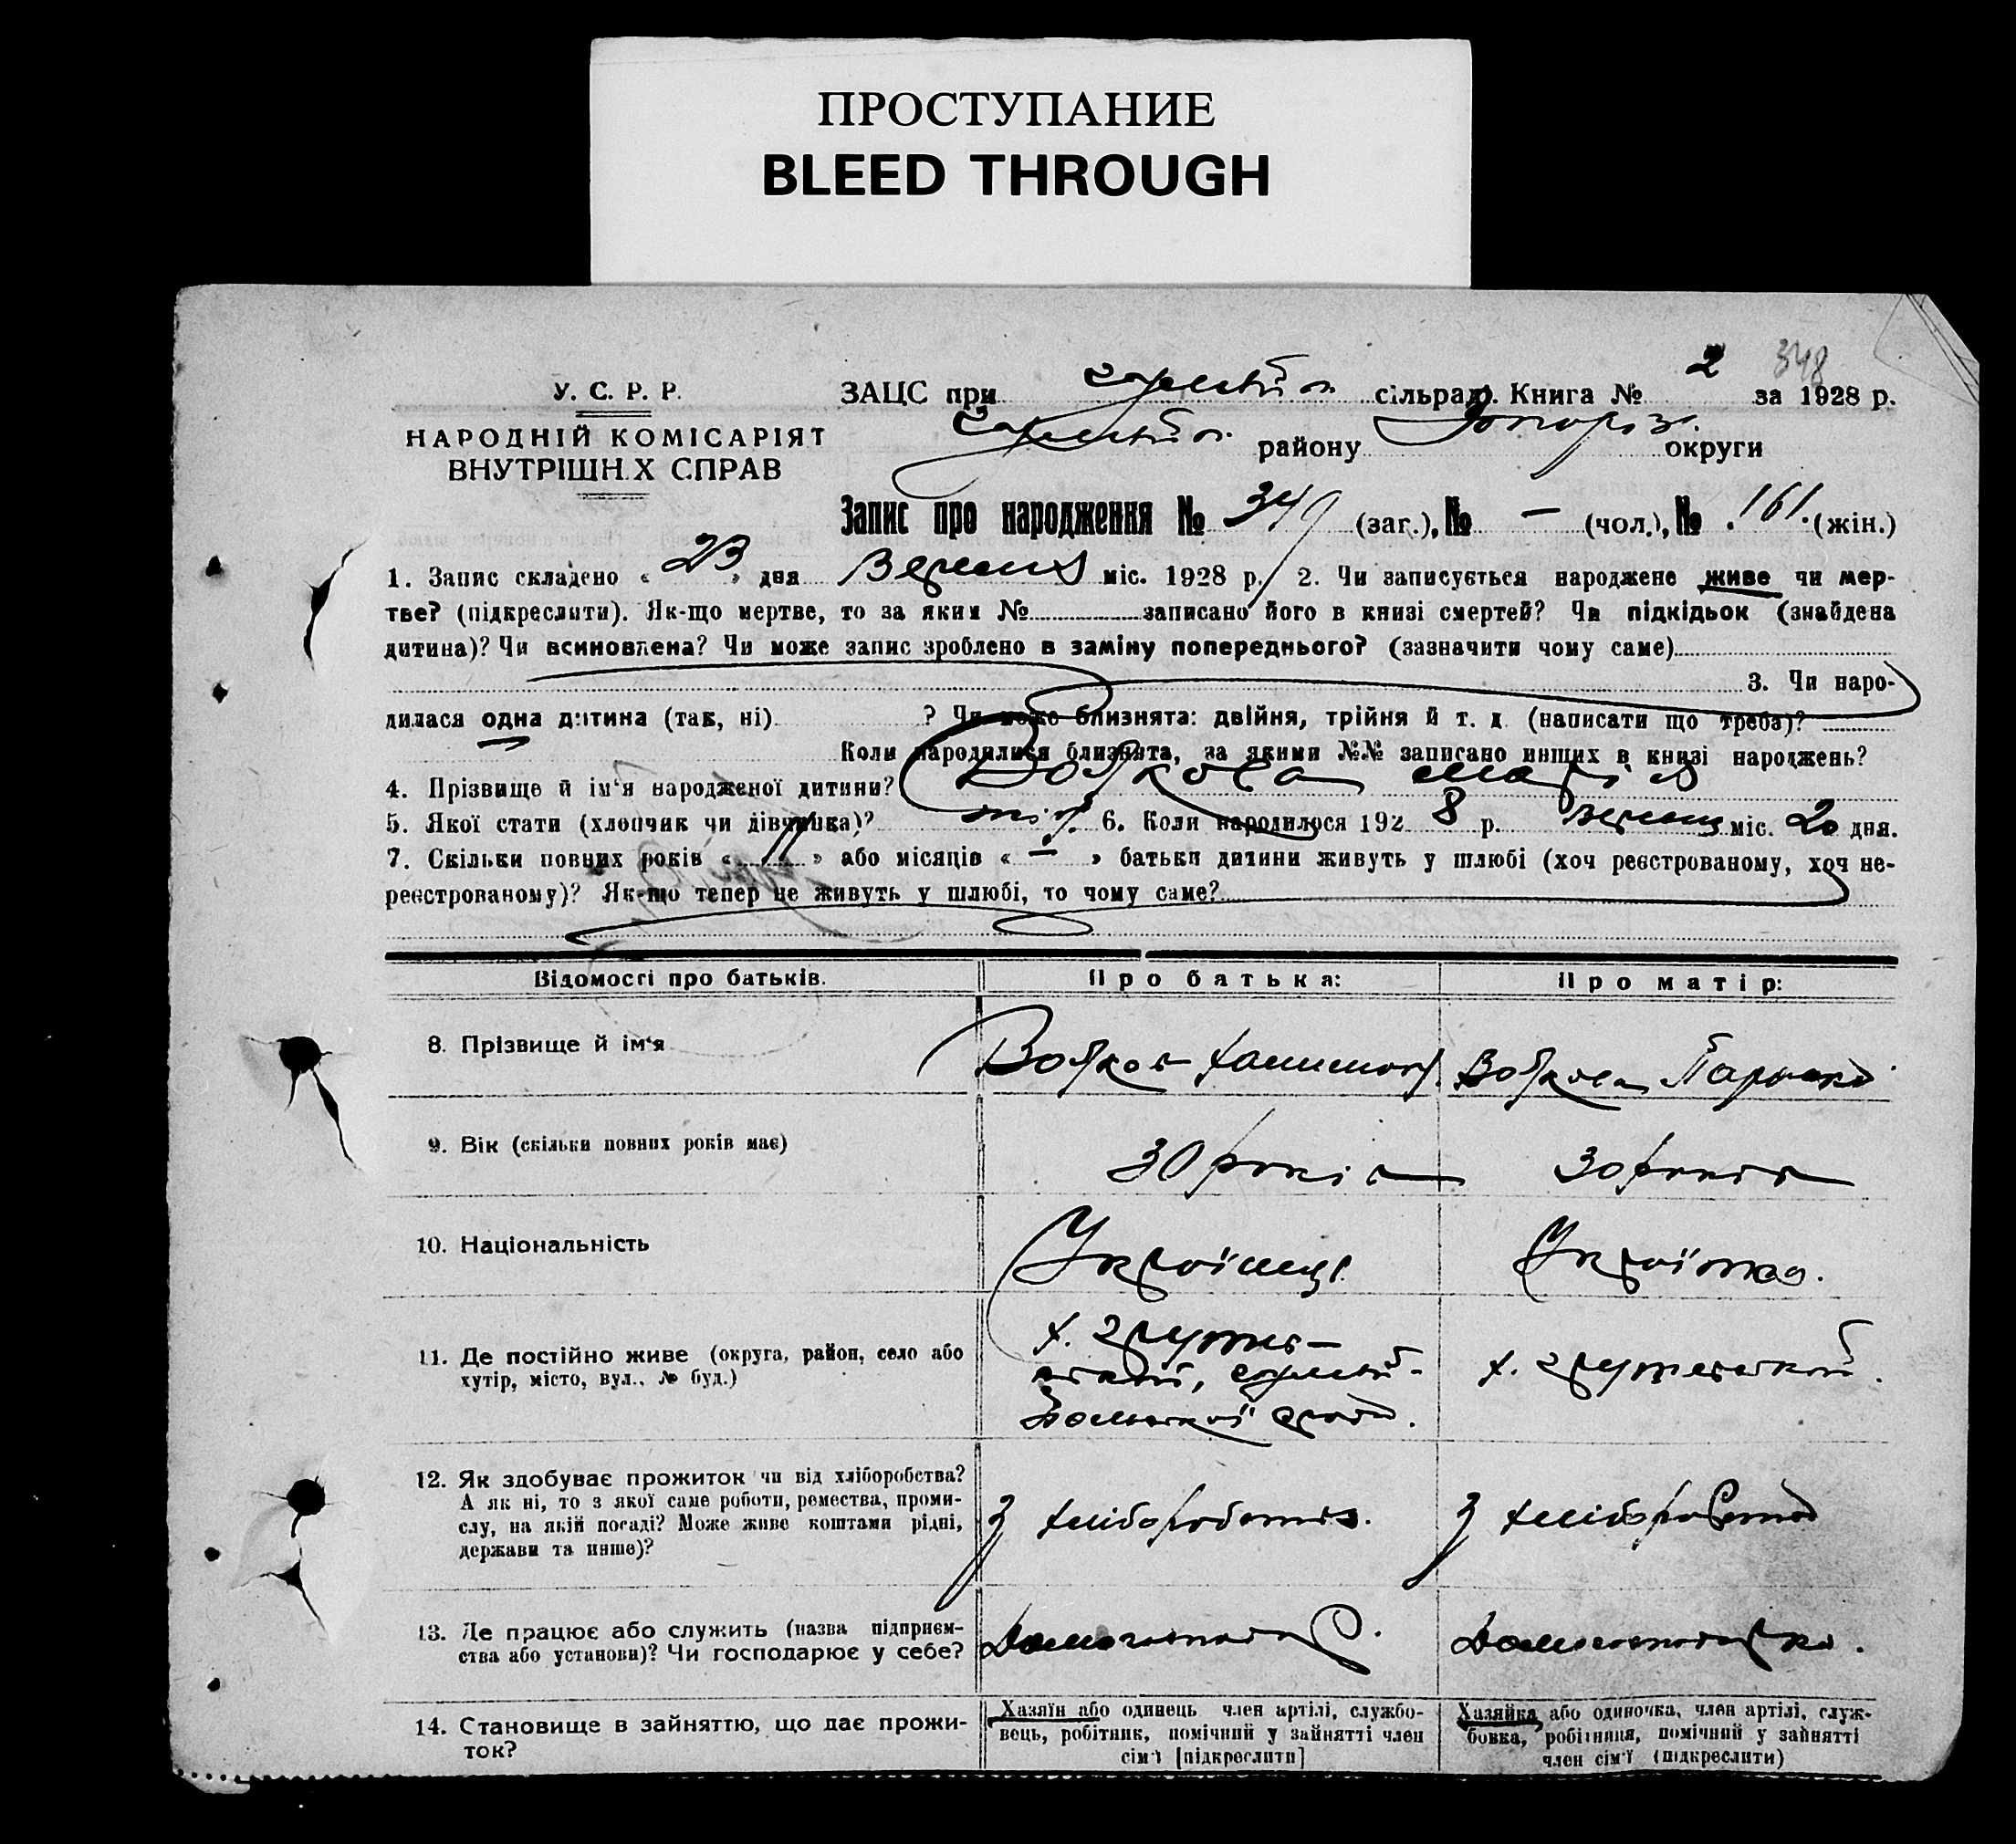 ПРОСТУПАНИЕ
BLEED THROUGH
2 348
У. С. Р. Р. ЗАЦС при сільраді. Книга № за 1928 р.
НАРОДНІЙ КОМІСАРІЯТ району округи
ВНУТРІШНІХ СПРАВ
Запис про народження № 349 (заг.), № — (чол.), № 161. (жін.)
1. Запис складено « 23 » дня Вересня міс. 1928 р. 2. Чи записується народжене живе чи мер-
тве? (підкреслити). Як-що мертве, то за яким № записано його в книзі смертей? Чи підкідьок (знайдена
дитина)? Чи всиновлена? Чи може запис зроблено в заміну попереднього? (зазначити чому саме)
3. Чи наро-
дилася одна дитина (так, ні) ? Чи може близнята: двійня, трійня й т. д. (написати що треба)?
Коли народилися близнята, за якими №№ записано инших в книзі народжень?
4. Прізвище й ім'я народженої дитини? Марія
5. Якої стати (хлопчик чи дівчинка)? 6. Коли народилося 192 8 р. Вересня міс. 20 дня.
7. Скільки повних років « 11 » або місяців « — » батьки дитини живуть у шлюбі (хоч реєстрованому, хоч не-
реєстрованому)? Як-що тепер не живуть у шлюбі, то чому саме?
Відомості про батьків. Про батька: Про матір:
8. Прізвище й ім'я
9. Вік (скільки повних років має) 30 років 30 років
10. Національність Українець Українка.
11. Де постійно живе (округа, район, село або
хутір, місто, вул., № буд.)
12. Як здобуває прожиток чи від хліборобства?
А як ні, то з якої саме роботи, ремества, проми-
слу, на якій посаді? Може живе коштами рідні,
держави та инше)?
З хліборобства. З хліборобства
13. Де працює або служить (назва підприєм-
ства або установи)? Чи господарює у себе?
Домогосподар. Домогосподарка.
14. Становище в зайняттю, що дає прожи-
ток?
Хазяїн або одинець член артілі, службо-
вець, робітник, помічний у зайнятті член
сім'ї [підкреслити]
Хазяйка або одиночка, член артілі, служ-
бовка, робітниця, помічний у зайнятті
член сім'ї (підкреслити)